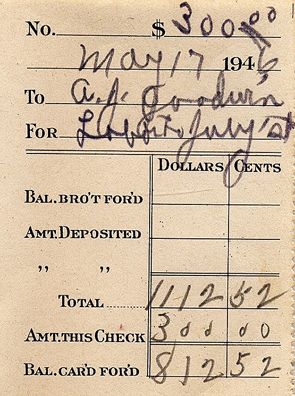 No. $ 300.00
May 17 1946
To A.J. Goodwin
For to July 1st
Dollars Cents
Bal. Bro't For'd
Amt. Deposited
" "
Total ........ 1112 52
Amt. This Check 300 00
Bal. Car'd For'd 812 52